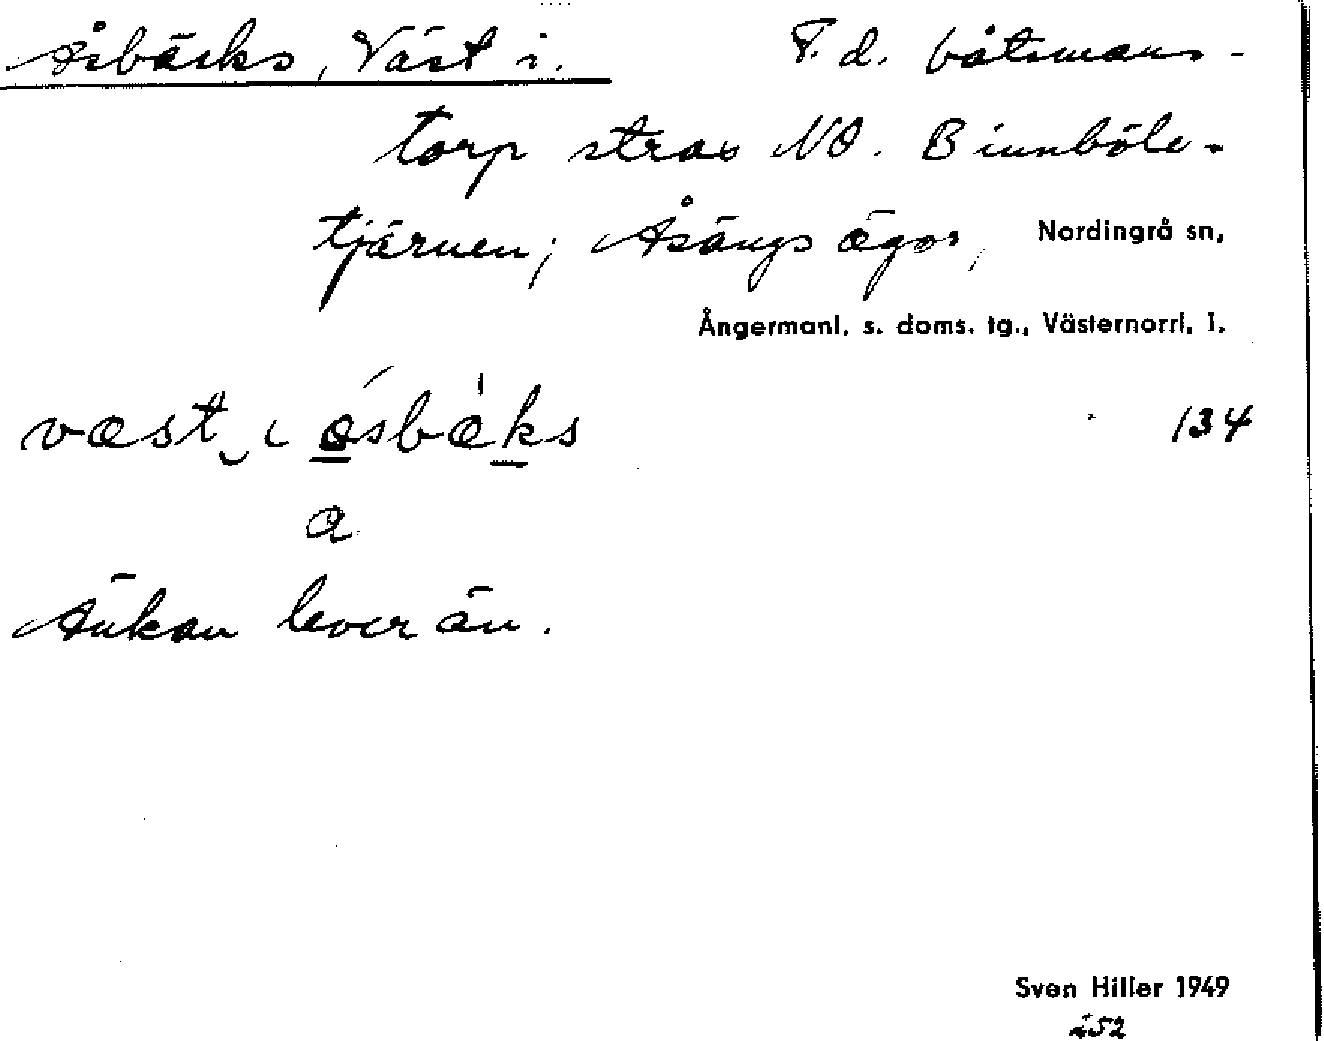 Åsbäcks, Väst i. F. d. båtsmans-
torp strax NO. Binnböle-
tjärnen; Åsängs ägor, Nordingrå sn,
Ångermanl. s. doms. tg., Västernorrl. l.
væst i åsbæks 134
a
Änkan lever än.
Sven Hiller 1949